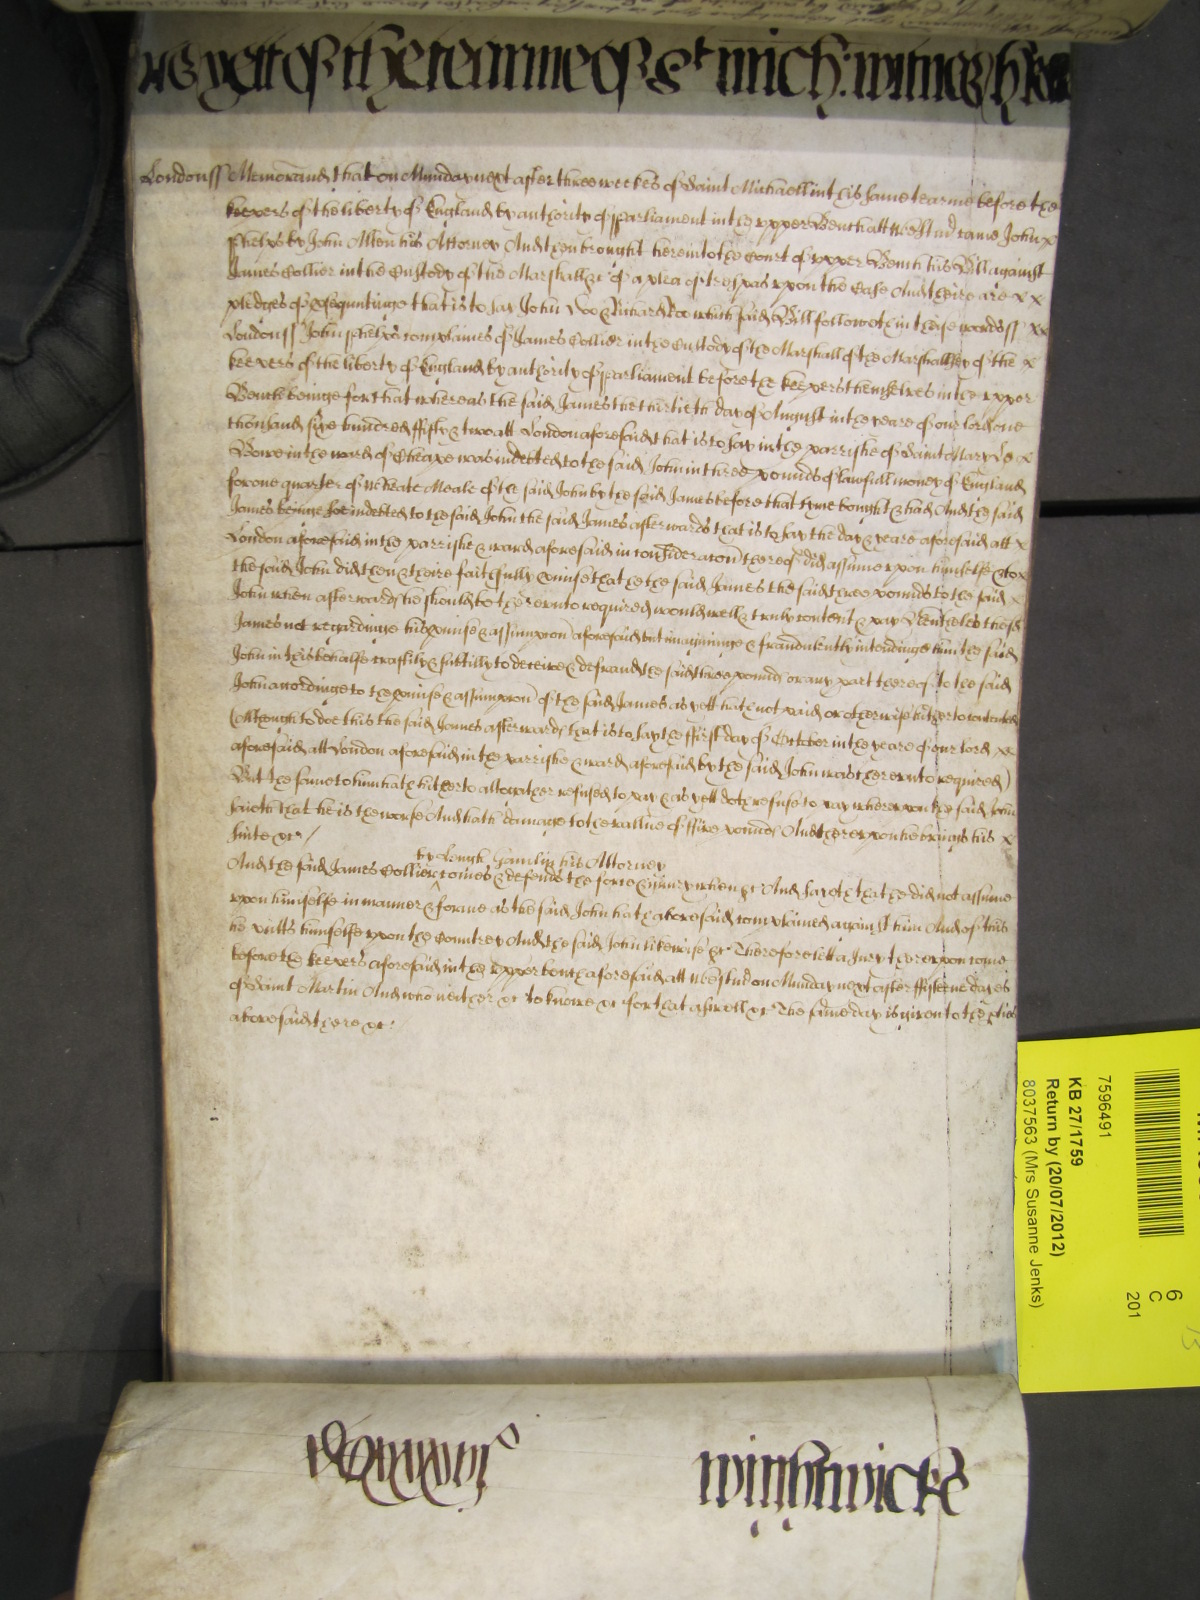 as yett of the tearme of St Mich: witnes H R
London ss Memorand that on Munday next after three weekes of Saint Michaell in this same tearme before the
keepers of the liberty of England by authority of Parliament in the upper Bench att Westmr came John x
Phelps by John Allen his Attorney And then brought here into the Court of upper Bench his Bill against
James Collier in the Custody of the Marshall &c of a plea of trespas upon the Case And there are x x
pledges of prosequutinge that is to say John Doe & Richard Roe which said Bill followeth in these words ss xx
London ss John Phelps complaines of James Collier in the Custody of the Marshall of the Marshallsey of the x
keepers of the liberty of England by authority of Parliament before the keepers themselves in the upper
Bench beinge for that whereas the said James the thirtieth day of August in the yeare of our lord one
thousand six hundred fifty & two att London aforesaid that is to say in the parrishe of Saint Mary le x
Bowe in the ward of Cheape was indebted to the said John in three pounds of lawfull money of England
for one quarter of wheate Meale of the said John by the said James before that tyme bought & had And the said
James beinge soe indebted to the said John the said James afterwards that is to say the day & yeare aforesaid att x
London aforesaid in the parrishe & ward aforesaid in consideracon thereof did assume upon himselfe & to x
the said John did then & there faithfully promise that he the said James the said three pounds to the said x
John when afterwards he should be thereunto required would well & truly content & pay Neverthelesse the sd
James not regardinge his promise & assumpcon aforesaid but imagininge & fraudulently intendinge him the said
John in this behalfe craftily & subtilly to deceive & defraud the said three pounds or any part thereof to the said
John accordinge to the promise & assumpcon of the said James as yett hath not paid or otherwise hitherto contented
(Although to doe this the said James afterwards that is to say the first day of October in the yeare of our lord xx
aforesaid att London aforesaid in the parrishe & ward aforesaid by the said John was thereunto required)
But the same to him hath hitherto altogether refused to pay & as yett doth refuse to pay whereupon the said John
saieth that he is the worse And hath damage to the vallue of five pounds And thereupon he brings his x
suite &c /
by Hamlyn his Attorney
And the said James Collier comes & defends the force & injury when &c And sayeth that he did not assume
upon himselfe in manner & forme as the said John hath above said complained against him And of this
he putts himselfe upon the Countrey And the said John likewise &c Therefore lett a Jury thereupon come
before the keepers aforesaid in the upper bench aforesaid att Westmr on Munday next after fifteene dayes
of Saint Martin And who neither &c to knowe &c for that aswell &c The same day is given to the pties
above said there &c /
winshwicke
7596491
KB 27/1759
Return by (20/07/2012)
8037563 (Mrs Susanne Jenks)
6
C
201